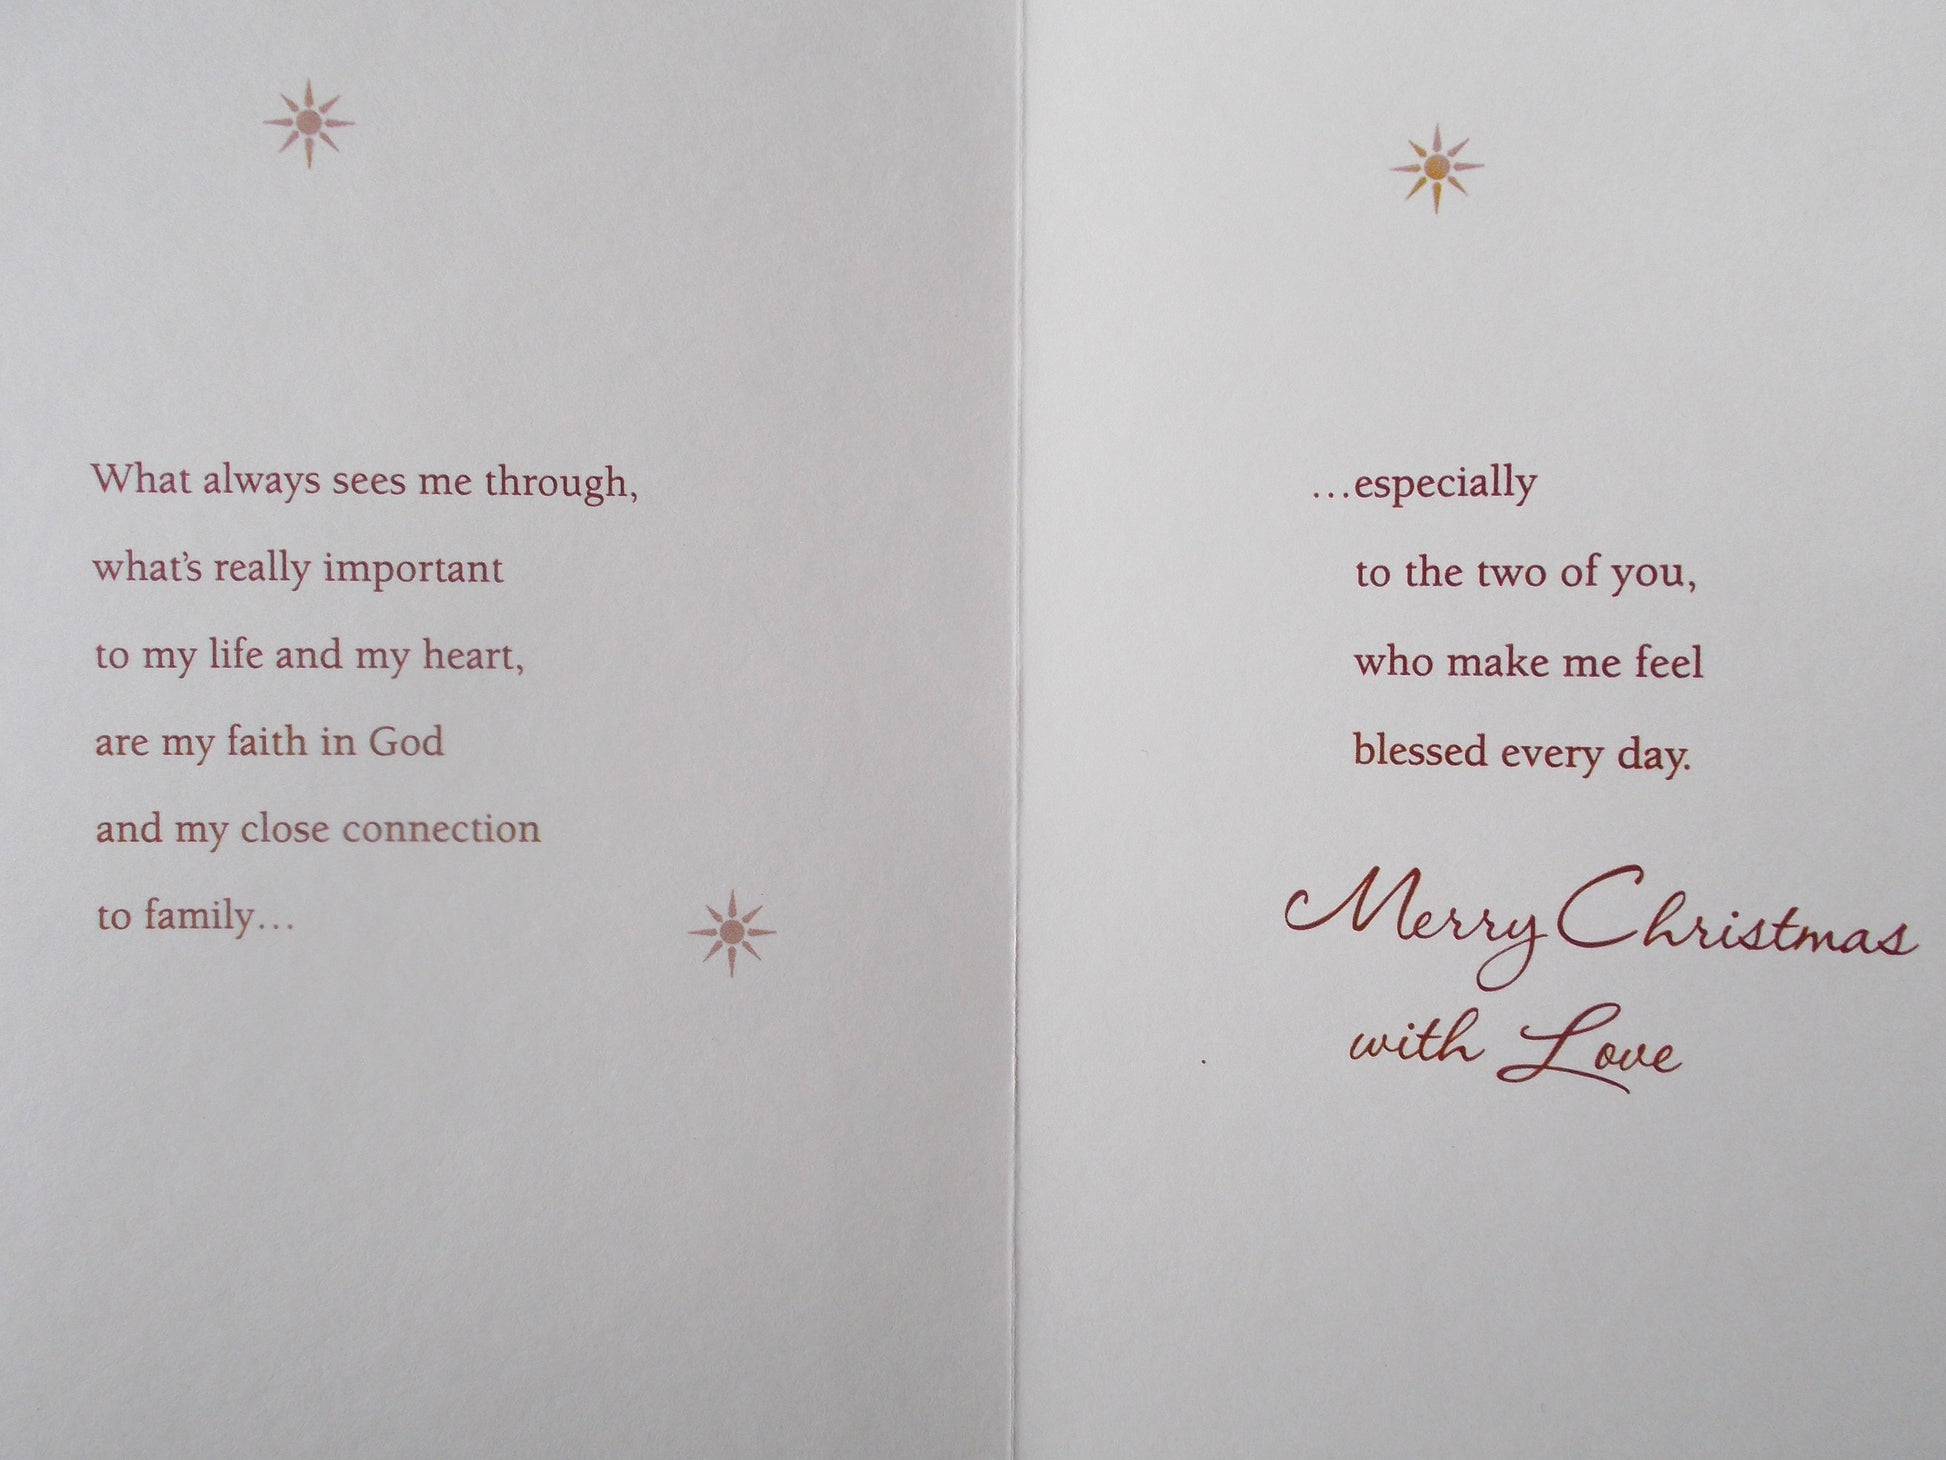 What always sees me through,
what's really important
to my life and my heart,
are my faith in God
and my close connection
to family...
...especially
to the two of you,
who make me feel
blessed every day.
Merry Christmas
with Love